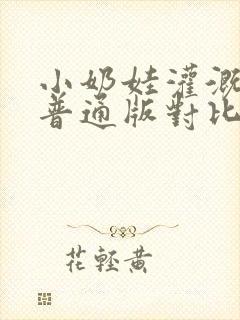 小奶娃灌溉
普通版對比
花輕黄